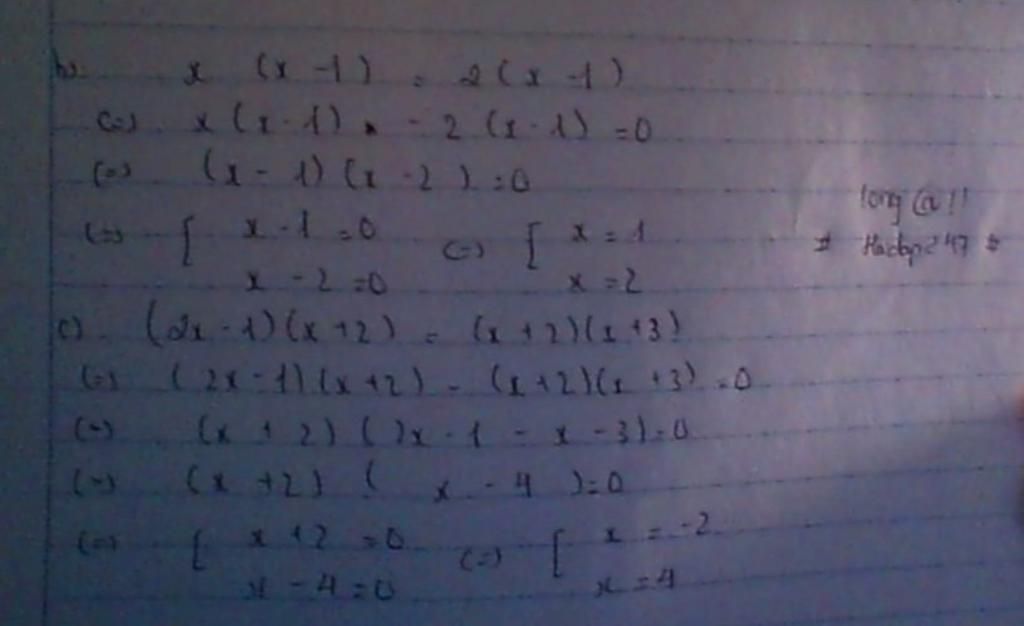 b). x (x - 1) = 2 (x - 1)
(=) x (x - 1) - 2 (x - 1) = 0
(=) (x - 1) (x - 2) = 0
(=) [ x - 1 = 0 (=) [ x = 1
x - 2 = 0 x = 2
long @ !!
# Hoctap247 #
c). (2x - 1)(x + 2) = (x + 2)(x + 3)
(=) (2x - 1)(x + 2) - (x + 2)(x + 3) = 0
(=) (x + 2) (2x - 1 - x - 3) = 0
(=) (x + 2) ( x - 4 ) = 0
(=) [ x + 2 = 0 (=) [ x = -2
x - 4 = 0 x = 4